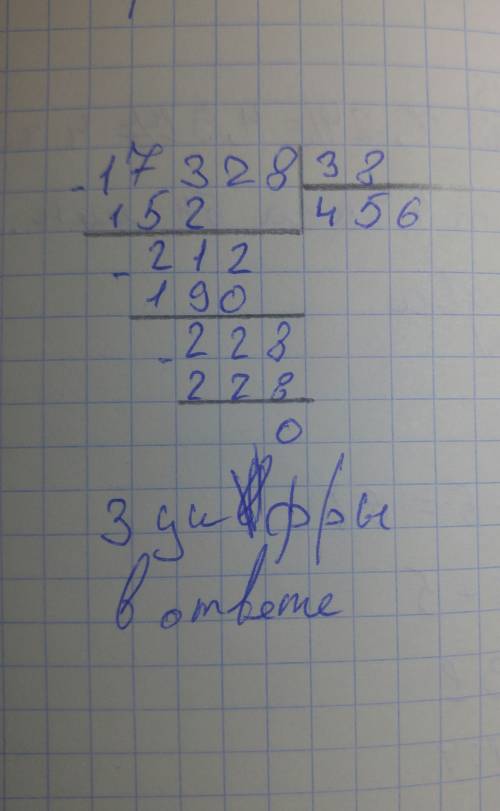 - 17328 38
152 456
- 212
190
- 228
228
0
3 цифры
в ответе